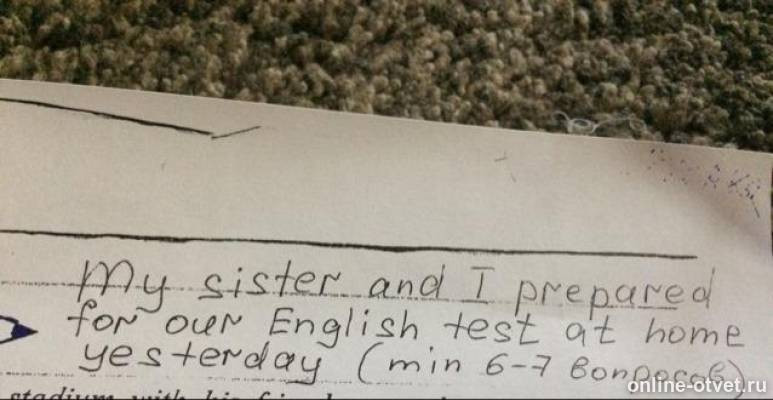 My sister and I prepared
for our English test at home
yesterday (min 6-7 вопросов)
stadium with his friend
online-otvet.ru